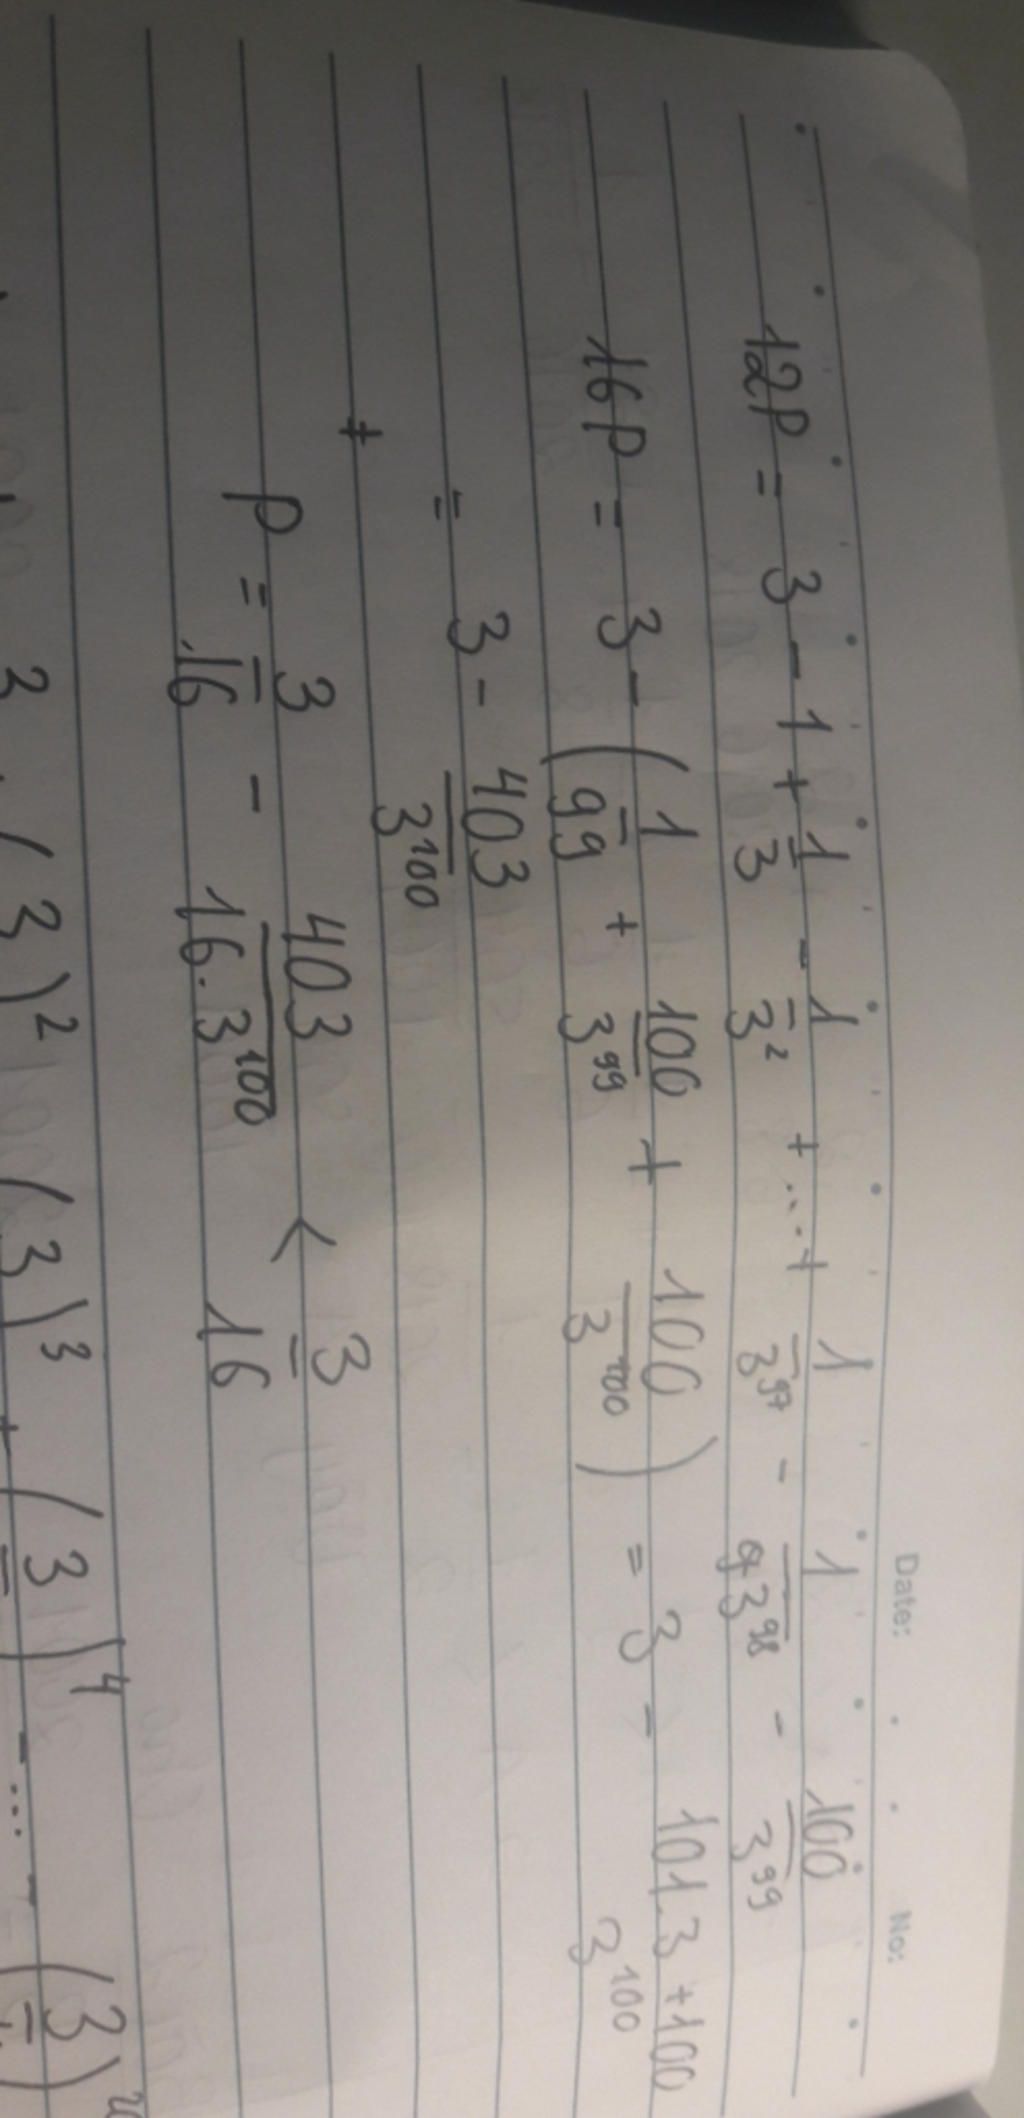 Date: No:
12P = 3 - 1 + 1/3 - 1/3² + ... + 1/3⁹⁷ - 1/3⁹⁸ - 100/3⁹⁹
16P = 3 - (1/99 + 100/3⁹⁹ + 100/3¹⁰⁰) = 3 - 101.3 + 100/3¹⁰⁰
= 3 - 403/3¹⁰⁰
P = 3/16 - 403/16.3¹⁰⁰ < 3/16